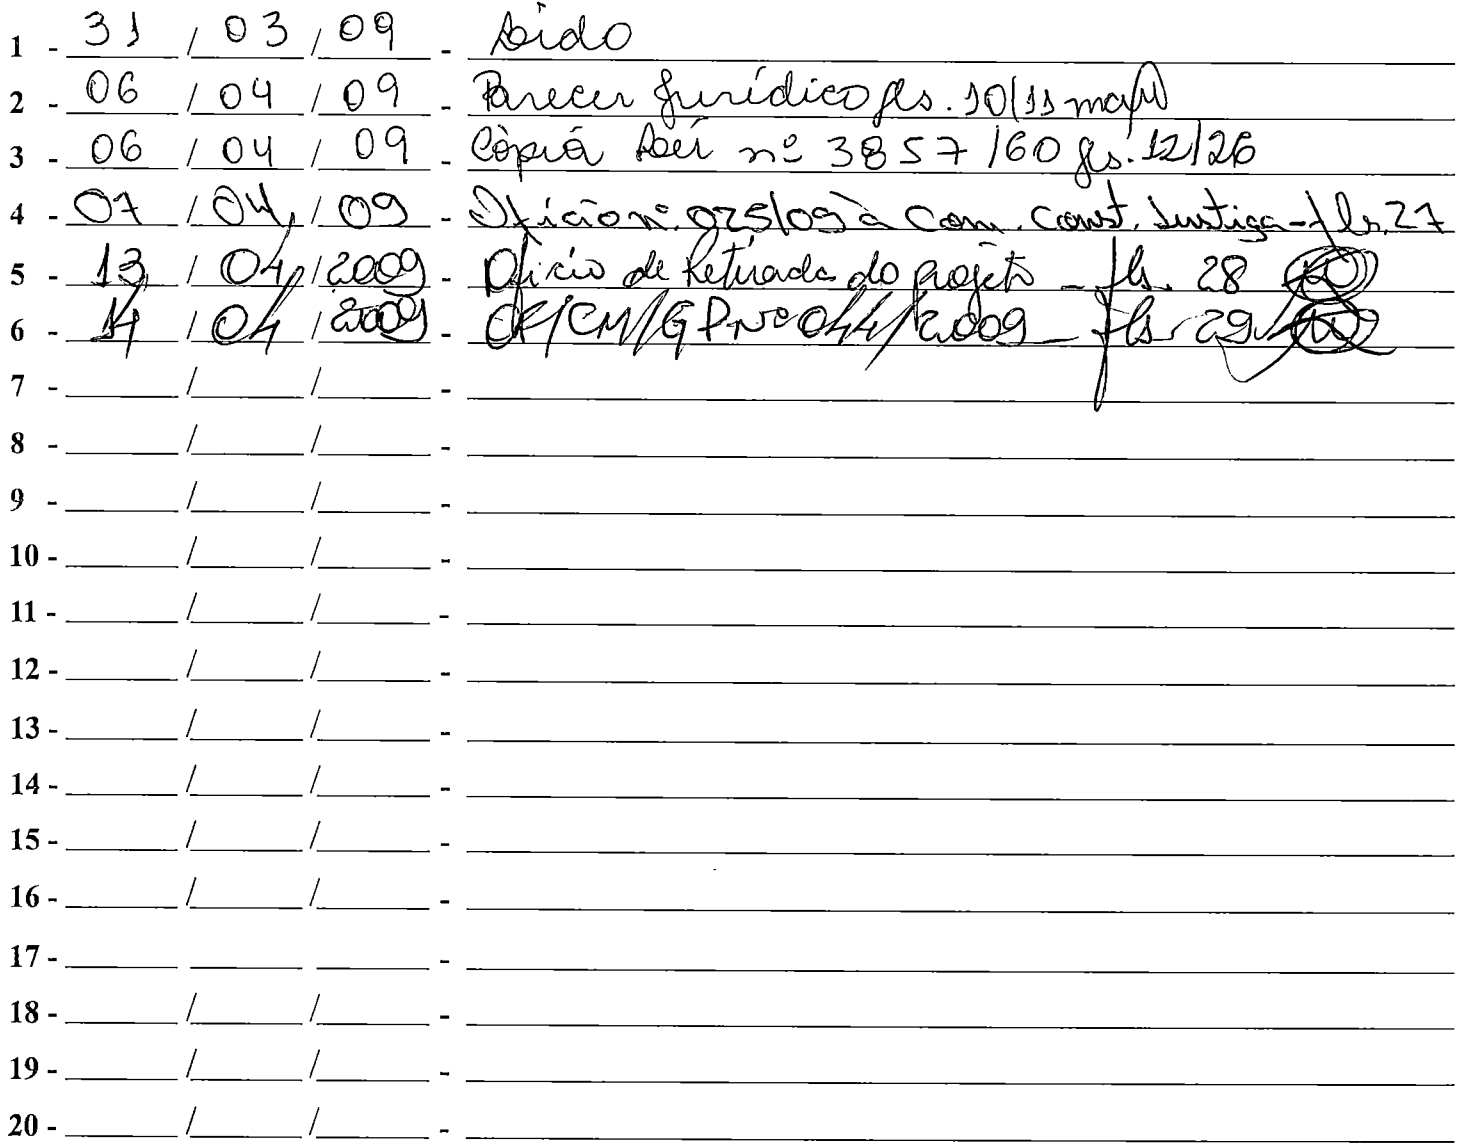 1 - 31 / 03 / 09 - Lido
2 - 06 / 04 / 09 - Parecer Jurídico fls. 10/11
3 - 06 / 04 / 09 - Cópia Lei nº 3857/60 fls. 12/26
4 - 07 / 04 / 09 - Ofício nº. 025/09 à Com. Const. Justiça - fls. 27
5 - 13 / 04 / 2009 - Ofício de Retirada do projeto - fls. 28
6 - 14 / 04 / 2009 - OF/CM/GP Nº 044/2009 - fls. 29
7 - / / -
8 - / / -
9 - / / -
10 - / / -
11 - / / -
12 - / / -
13 - / / -
14 - / / -
15 - / / -
16 - / / -
17 - -
18 - / / -
19 - / / -
20 - / / -